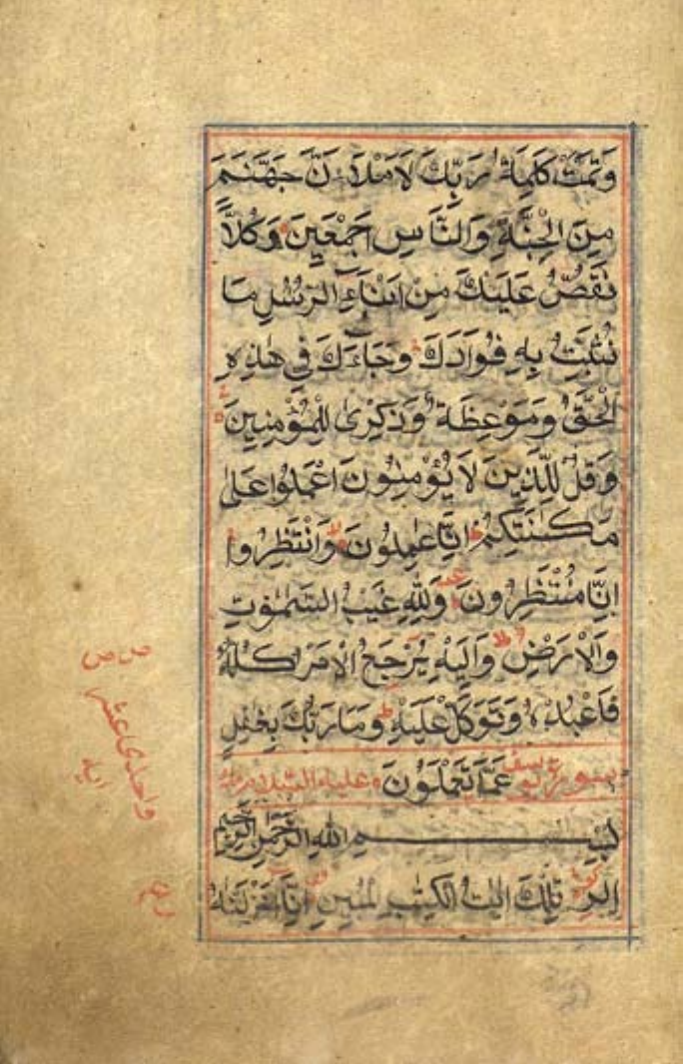 وَتَمَّتْ كَلِمَةُ رَبِّكَ لَأَمْلَأَنَّ جَهَنَّمَ
مِنَ الْجِنَّةِ وَالنَّاسِ اَجْمَعِينَ وَكُلًّا
نَقُصُّ عَلَيْكَ مِنْ اَنْبَاءِ الرُّسُلِ مَا
نُثَبِّتُ بِهِ فُوَادَكَ وَجَاءَكَ فِي هٰذِهِ
الْحَقُّ وَمَوْعِظَةٌ وَذِكْرٰى لِلْمُؤْمِنِينَ
وَقُلْ لِلَّذِينَ لَا يُؤْمِنُونَ اعْمَلُوا عَلٰى
مَكَانَتِكُمْ اِنَّا عٰمِلُونَ وَانْتَظِرُوا
اِنَّا مُنْتَظِرُونَ وَلِلّٰهِ غَيْبُ السَّمٰوٰتِ
وَالْاَرْضِ وَاِلَيْهِ يُرْجَعُ الْاَمْرُ كُلُّهُ
فَاعْبُدْهُ وَتَوَكَّلْ عَلَيْهِ وَمَا رَبُّكَ بِغٰفِلٍ
سورة يوسف عَمَّا تَعْمَلُونَ عليه السلام
بِسْمِ اللهِ الرَّحْمٰنِ الرَّحِيمِ
الٓرٰ تِلْكَ اٰيٰتُ الْكِتٰبِ الْمُبِينِ اِنَّا اَنْزَلْنٰهُ